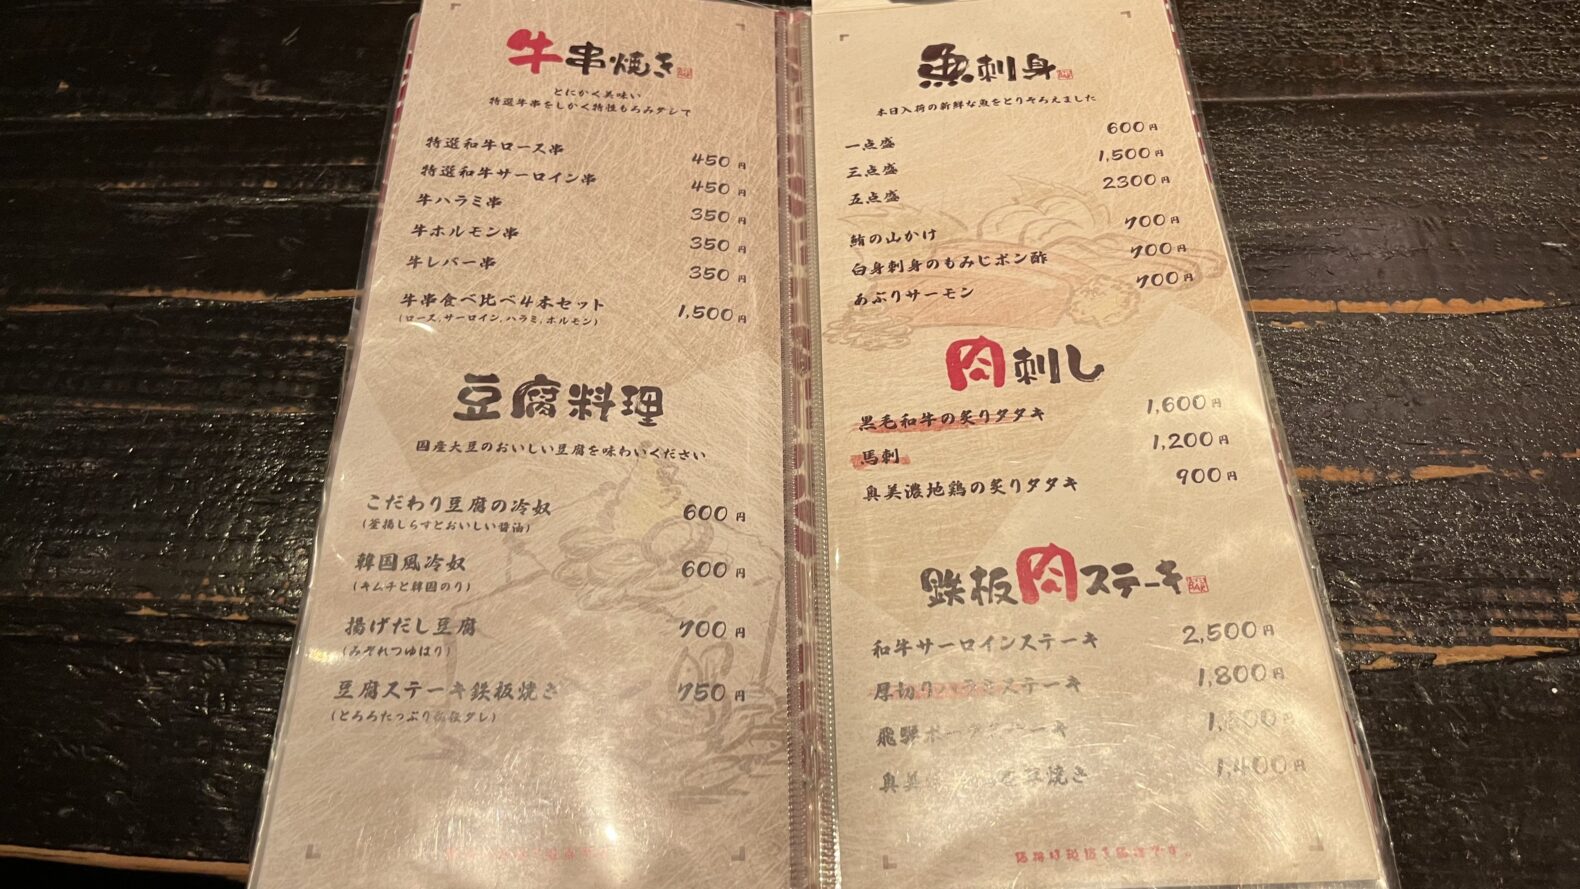 牛串焼き
とにかく美味い
特選牛串をしかく特性もろみダレで
特選和牛ロース串 450円
特選和牛サーロイン串 450円
牛ハラミ串 350円
牛ホルモン串 350円
牛レバー串 350円
牛串食べ比べ4本セット 1,500円
(ロース,サーロイン,ハラミ,ホルモン)
豆腐料理
国産大豆のおいしい豆腐を味わいください
こだわり豆腐の冷奴 600円
(釜揚しらすとおいしい醤油)
韓国風冷奴 600円
(キムチと韓国のり)
揚げだし豆腐 700円
(みぞれつゆはり)
豆腐ステーキ鉄板焼き 750円
(とろろたっぷり タレ)
魚刺身
本日入荷の新鮮な魚をとりそろえました
一点盛 600円
三点盛 1,500円
五点盛 2300円
鮪の山かけ 700円
白身刺身のもみじポン酢 700円
あぶりサーモン 700円
肉刺し
黒毛和牛の炙りタタキ 1,600円
馬刺 1,200円
奥美濃地鶏の炙りタタキ 900円
鉄板肉ステーキ
和牛サーロインステーキ 2,500円
厚切りハラミステーキ 1,800円
飛騨 円
奥美 焼き 1,400円
価格は税抜き価格です。